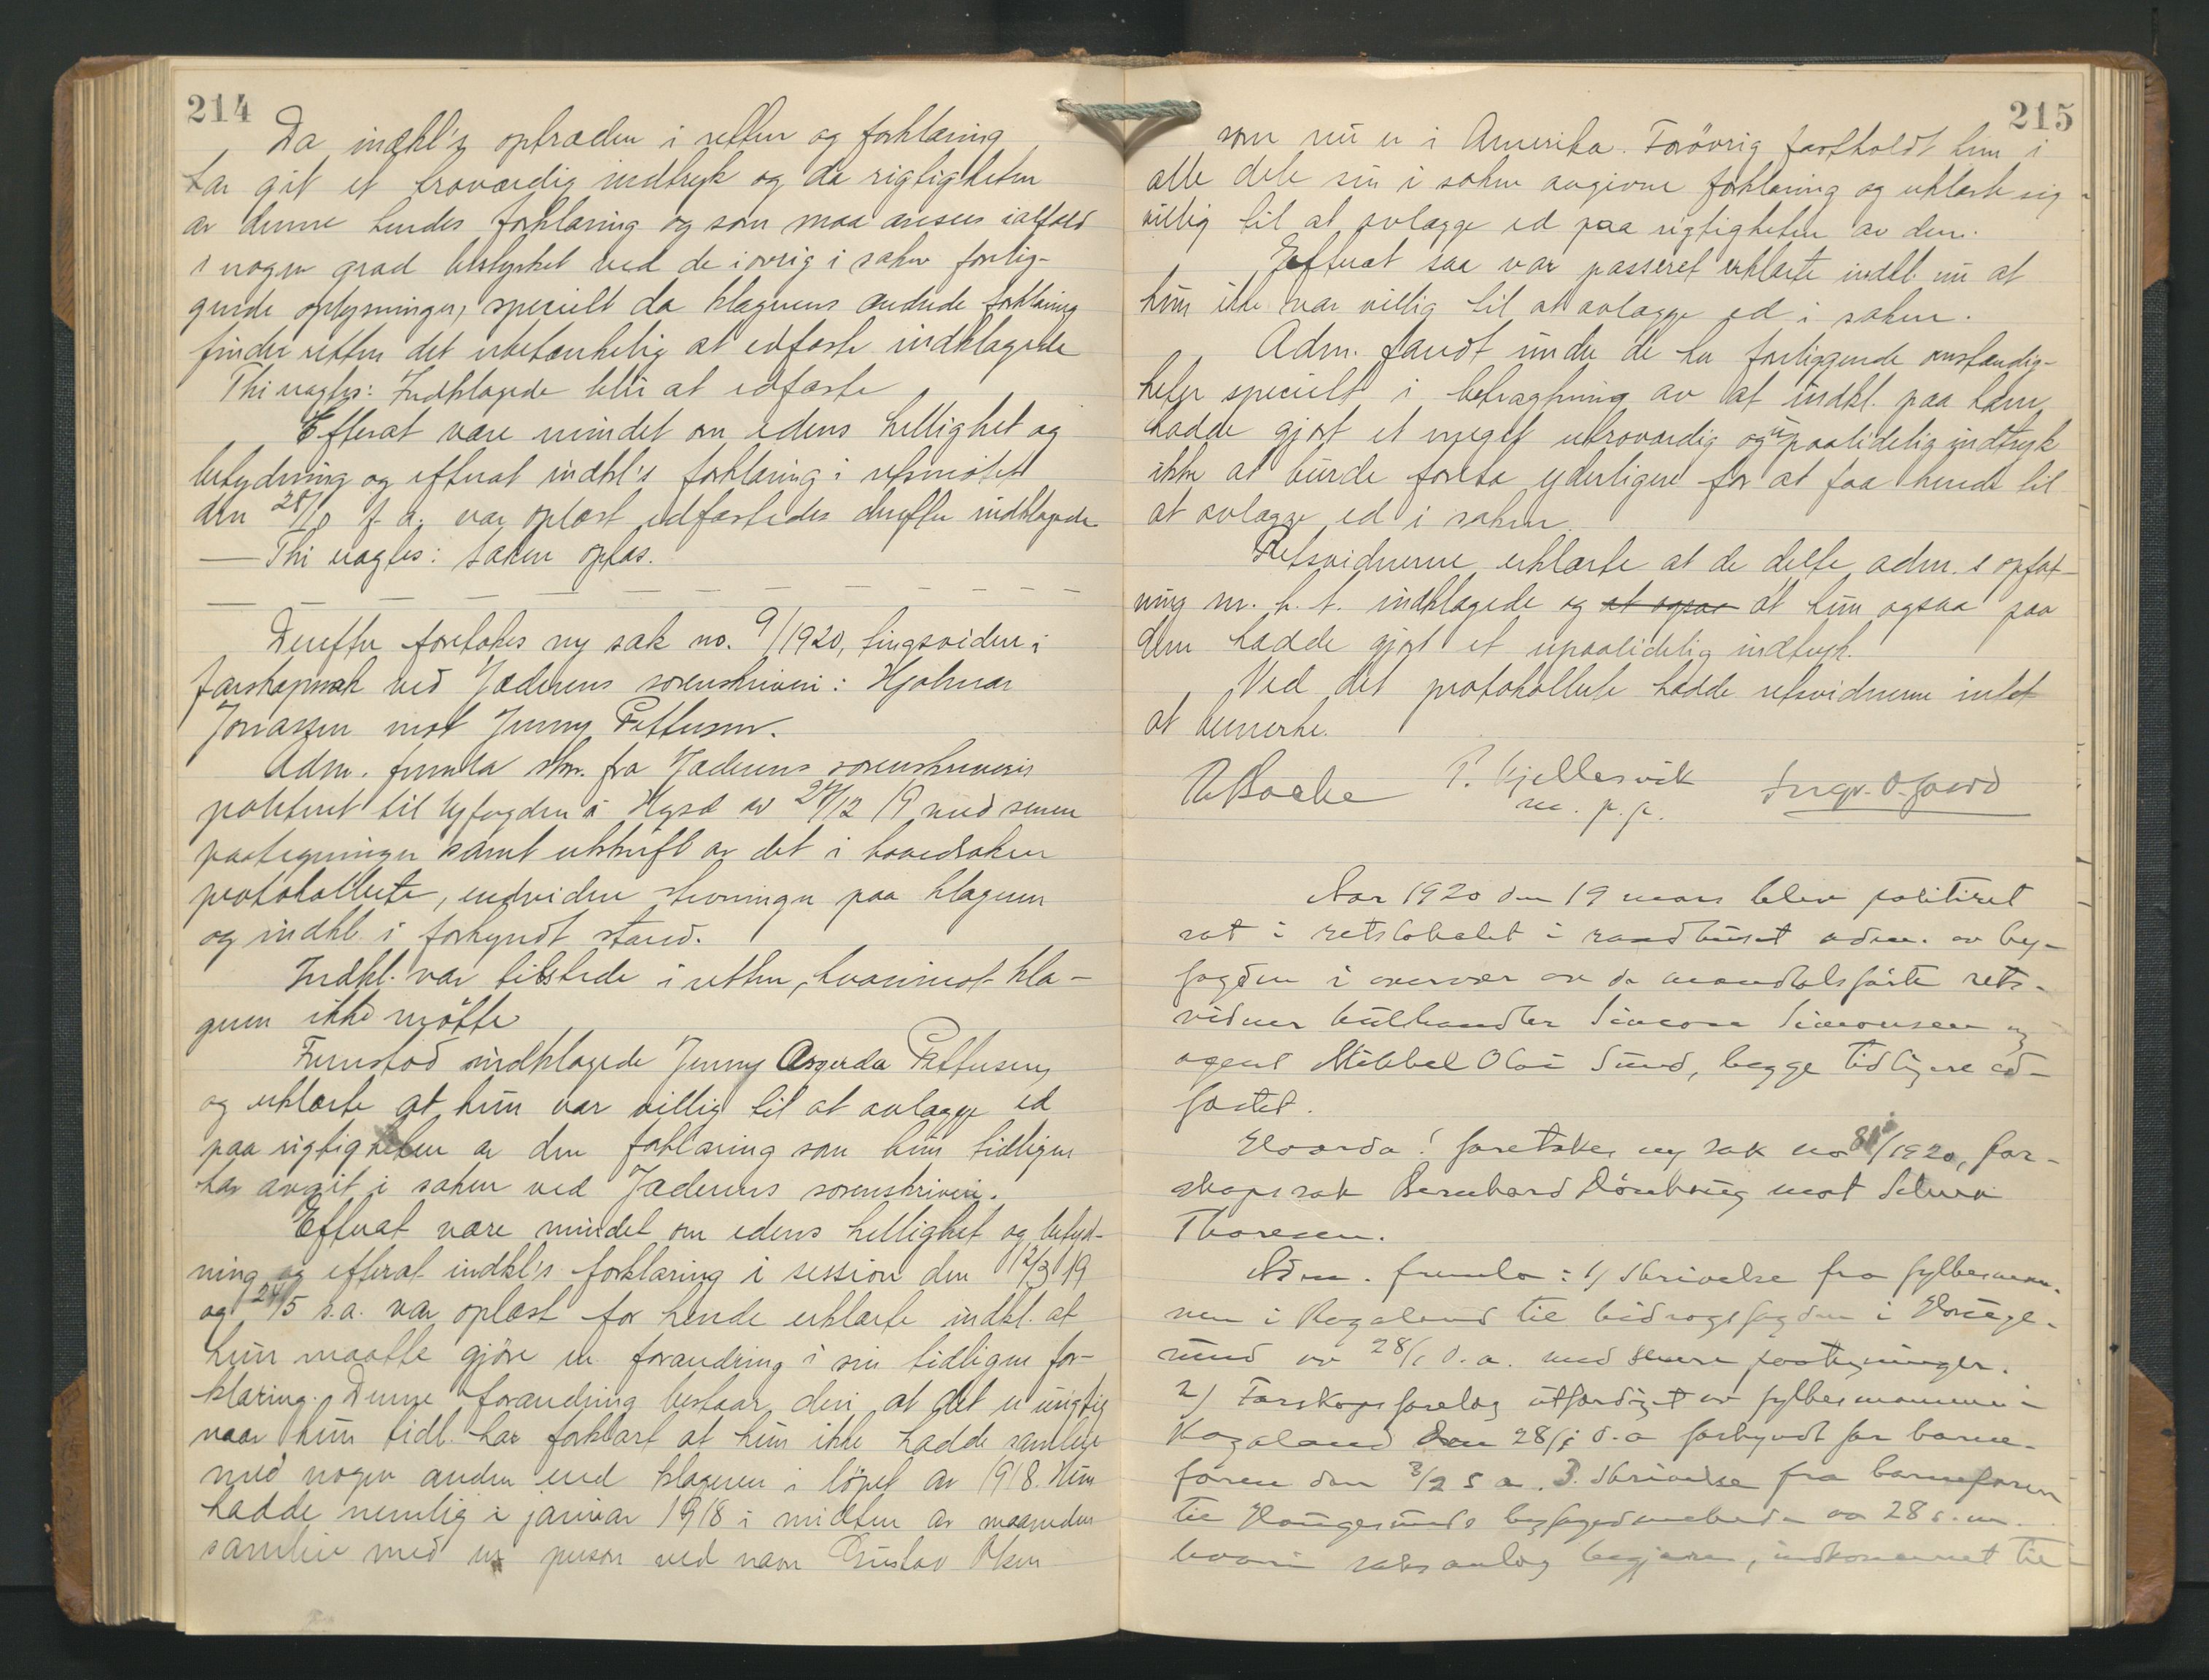 214
Da indkl's optræden i retten og forklaring
har git et troværdig indtryk og da rigtigheten
av denne hendes forklaring og som maa ansees ialfald
i nogen grad bestyrket ved de iøvrig i saken forlig-
gende oplysninger, specielt da klagerens endrede forklaring
finder retten det ubetænkelig at edfæste indklagede
Thi vagtes: Indklagede blir at edfæste
Efterat være mindet om edens hellighet og
betydning og efterat indkl's forklaring i retsmøtet
den 28/10 f. a. var oplæst edfæstedes derefter indklagede
— Thi vagtes: Saken oplas.
Derefter foretokes ny sak no. 9/1920, tingsviden i
farskapssak ved Jæderens sorenskriveri: Hjalmar
Jonassen mot Jenny Pettersen.
Adm. fremla skr. fra Jæderens sorenskriveris
politiret til byfogden i Hgsd av 27/12 19 med senere
paategninger samt utskrift av det i hovedsaken
protokollerte, endvidere stevninger paa klageren
og indkl. i forkyndt stand.
Indkl. var tilstede i retten, hvorimot kla-
geren ikke møtte
Fremstod indklagede Jenny Asgerda Pettersen,
og erklærte at hun var villig til at avlægge ed
paa rigtigheten av den forklaring som hun tidligere
har avgit i saken ved Jæderens sorenskriveri.
Efterat være mindet om edens hellighet og betyd-
ning og efterat indkl's forklaring i session den 12/3 19
og 24/5 s.a. var oplæst for hende erklærte indkl. at
hun maatte gjöre en forandring i sin tidligere for-
klaring. Denne forandring bestaar deri at det er urigtig
naar hun tidl. har forklart at hun ikke hadde samleie
med nogen anden end klageren i löpet av 1918. Hun
hadde nemlig i januar 1918 i midten av maaneden
samleie med en person ved navn Gustav Olsen
215
som nu er i Amerika. Forövrig fastholdt hun i
alle dele sin i saken avgivne forklaring og erklærte sig
villig til at avlægge ed paa rigtigheten av den.
Efterat saa var passeret erklærte indkl. nu at
hun ikke var villig til at avlægge ed i saken.
Adm. fandt under de her forliggende omstændig-
heter specielt i betragtning av at indkl. paa ham
hadde gjort et meget utroværdig og upaalidelig indtryk
ikke at burde foreta yderligere for at faa hende til
at avlægge ed i saken.
Retsvidnerne erklærte at de delte adm.s opfat-
ning m. h. t. indklagede og at ogsaa at hun ogsaa paa
dem hadde gjort et upaalidelig indtryk.
Ved det protokollerte hadde retsvidnerne intet
at bemerke.
P. Kjellesvik
m. p. p.
Aar 1920 den 19 mars blev politiret
sat i retslokalet i raadhuset adm. av by-
fogden i overvær av de mandtalsførte rets-
vidner kulhandler Simon Simonsen og
agent Mikkel Olai Sund, begge tidligere ed-
fæstet.
Hvorda! foretokes ny sak no 8/1920, far-
skapssak Bernhard mot Selma
Thoresen.
Adm. fremla: 1/ Skrivelse fra fylkesman-
nen i Rogaland til bidragsfogden i Hauge-
sund av 28/1 d. a. med senere paategninger.
2) Farskapsforelæg utfærdiget av fylkesmannen i
Rogaland den 28/1 d. a forkyndt for barne-
faren den 3/2 s a. 3. Skrivelse fra barnefaren
til Haugesunds byfogedembede av 28 s. m.
hvori saksanlæg begjæres, indkommet til